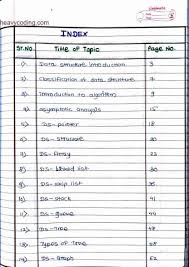 heavycoding.
INDEX
Sr.No. Title Of Topic Page No.
1) Data structure Introduction 3
2) Classification of data structure 7
3) Introduction to algorithm 9
4) asymptotic analysis 15
5) DS- pointer 18
6) DS- structure 20
7) DS- Array 23
8) DS- linked list
9) DS- skip list 35
10) DS- stack 41
11) DS- queue 44
12) DS- Tree 48
13) Types of Tree
14) DS- Graph 62